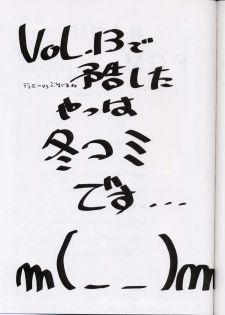 VOL.13で
予告した
やつは
冬コミ
です...
m(_ _)m